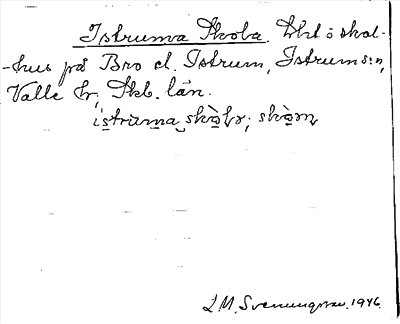 Istruma Skola. Lht o skol-
-hus på Bro el. Istrum, Istrum s:n,
Valle hr, Skb. län.
istruma
L M. Svenungsson. 1946.